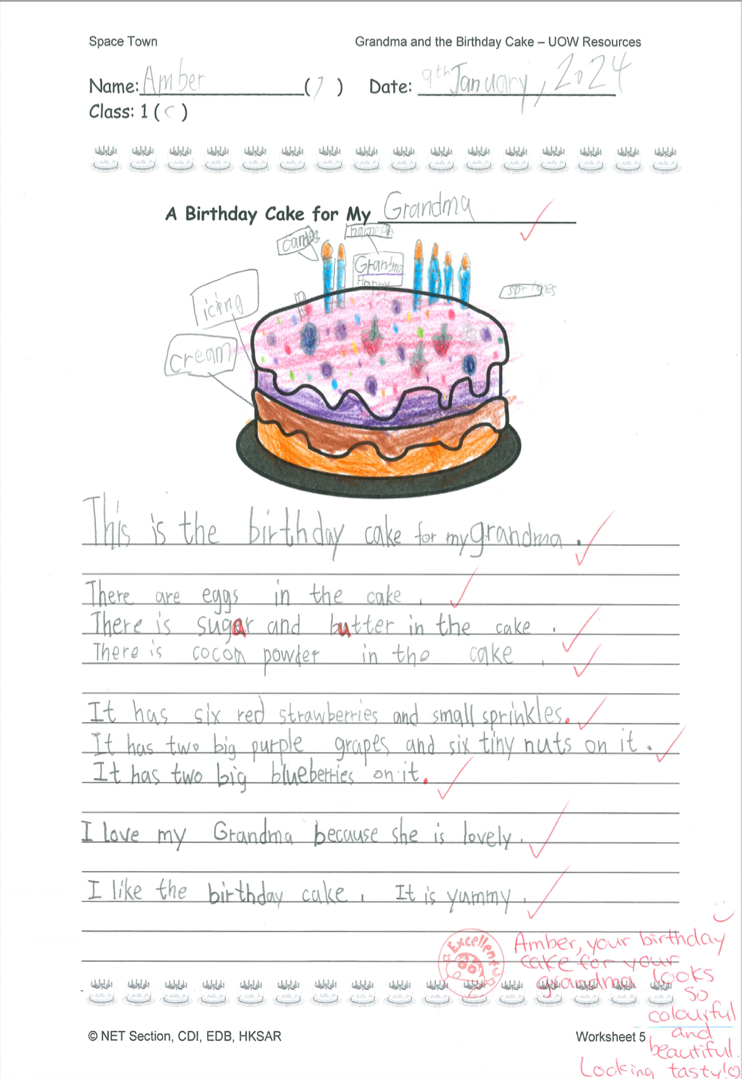 Space Town Grandma and the Birthday Cake – UOW Resources
Name: Amber ( 7 ) Date: 9th January, 2024
Class: 1 ( C )
A Birthday Cake for My Grandma
candles
Grandma
Happy
icing
cream
This is the birthday cake for my grandma.
There are eggs in the cake.
There is sugar and butter in the cake.
There is cocoa powder in the cake.
It has six red strawberries and small sprinkles.
It has two big purple grapes and six tiny nuts on it.
It has two big blueberries on it.
I love my Grandma because she is lovely.
I like the birthday cake. It is yummy.
Excellent
Amber, your birthday
cake for your
grandma looks
so
colourful
and
beautiful.
Looking tasty!
© NET Section, CDI, EDB, HKSAR Worksheet 5